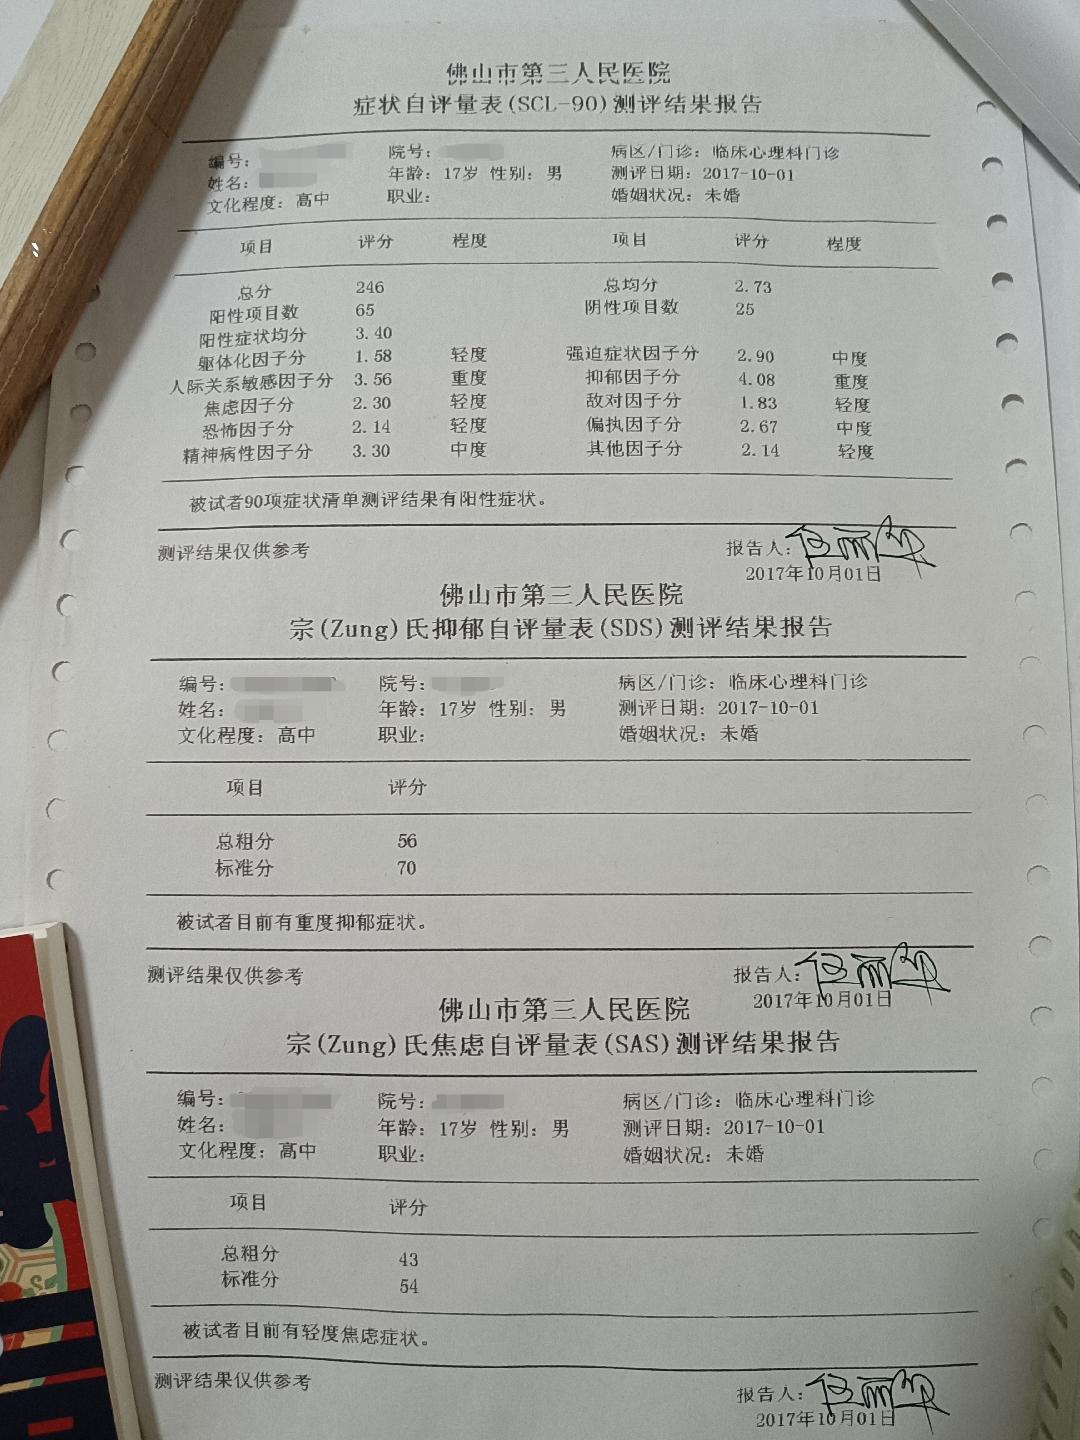 佛山市第三人民医院
症状自评量表(SCL-90)测评结果报告
编号: 院号: 病区/门诊: 临床心理科门诊
姓名: 年龄: 17岁 性别: 男 测评日期: 2017-10-01
文化程度: 高中 职业: 婚姻状况: 未婚
项目 评分 程度 项目 评分 程度
总分 246 总均分 2.73
阳性项目数 65 阴性项目数 25
阳性症状均分 3.40
躯体化因子分 1.58 轻度 强迫症状因子分 2.90 中度
人际关系敏感因子分 3.56 重度 抑郁因子分 4.08 重度
焦虑因子分 2.30 轻度 敌对因子分 1.83 轻度
恐怖因子分 2.14 轻度 偏执因子分 2.67 中度
精神病性因子分 3.30 中度 其他因子分 2.14 轻度
被试者90项症状清单测评结果有阳性症状。
测评结果仅供参考 报告人:
2017年10月01日
佛山市第三人民医院
宗(Zung)氏抑郁自评量表(SDS)测评结果报告
编号: 院号: 病区/门诊: 临床心理科门诊
姓名: 年龄: 17岁 性别: 男 测评日期: 2017-10-01
文化程度: 高中 职业: 婚姻状况: 未婚
项目 评分
总粗分 56
标准分 70
被试者目前有重度抑郁症状。
测评结果仅供参考 报告人:
2017年10月01日
佛山市第三人民医院
宗(Zung)氏焦虑自评量表(SAS)测评结果报告
编号: 院号: 病区/门诊: 临床心理科门诊
姓名: 年龄: 17岁 性别: 男 测评日期: 2017-10-01
文化程度: 高中 职业: 婚姻状况: 未婚
项目 评分
总粗分 43
标准分 54
被试者目前有轻度焦虑症状。
测评结果仅供参考 报告人:
2017年10月01日